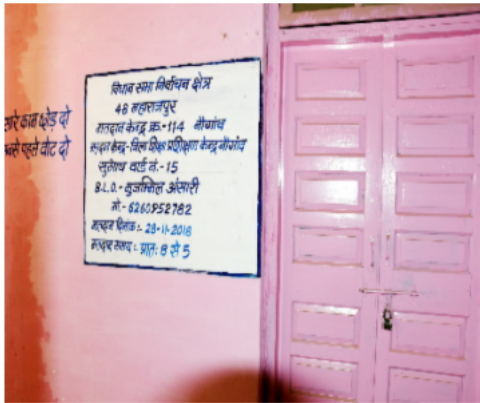 सारे काम छोड़ दो
सबसे पहले वोट दो
विधान सभा निर्वाचन क्षेत्र
48 महाराजपुर
मतदान केन्द्र क्र.-114 नौगांव
मतदान केन्द्र-जिला शिक्षा प्रशिक्षण केन्द्र नौगांव
सुभाष वार्ड नं.-15
B.L.O.- मुजम्मिल अंसारी
मो.-6260952782
मतदान दिनांक:- 28-11-2018
मतदान समय:- प्रात: 8 से 5